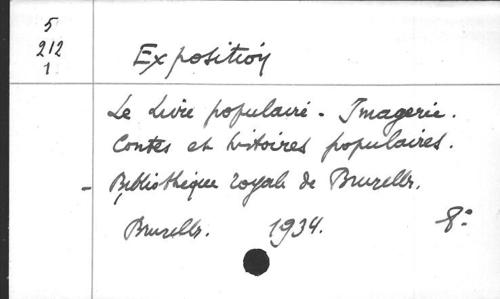 5
212
1
Exposition
Le Livre populaire - Imagerie.
Contes et histoires populaires.
- Bibliothèque royale de Bruxelles.
Bruxelles. 1934. 8°